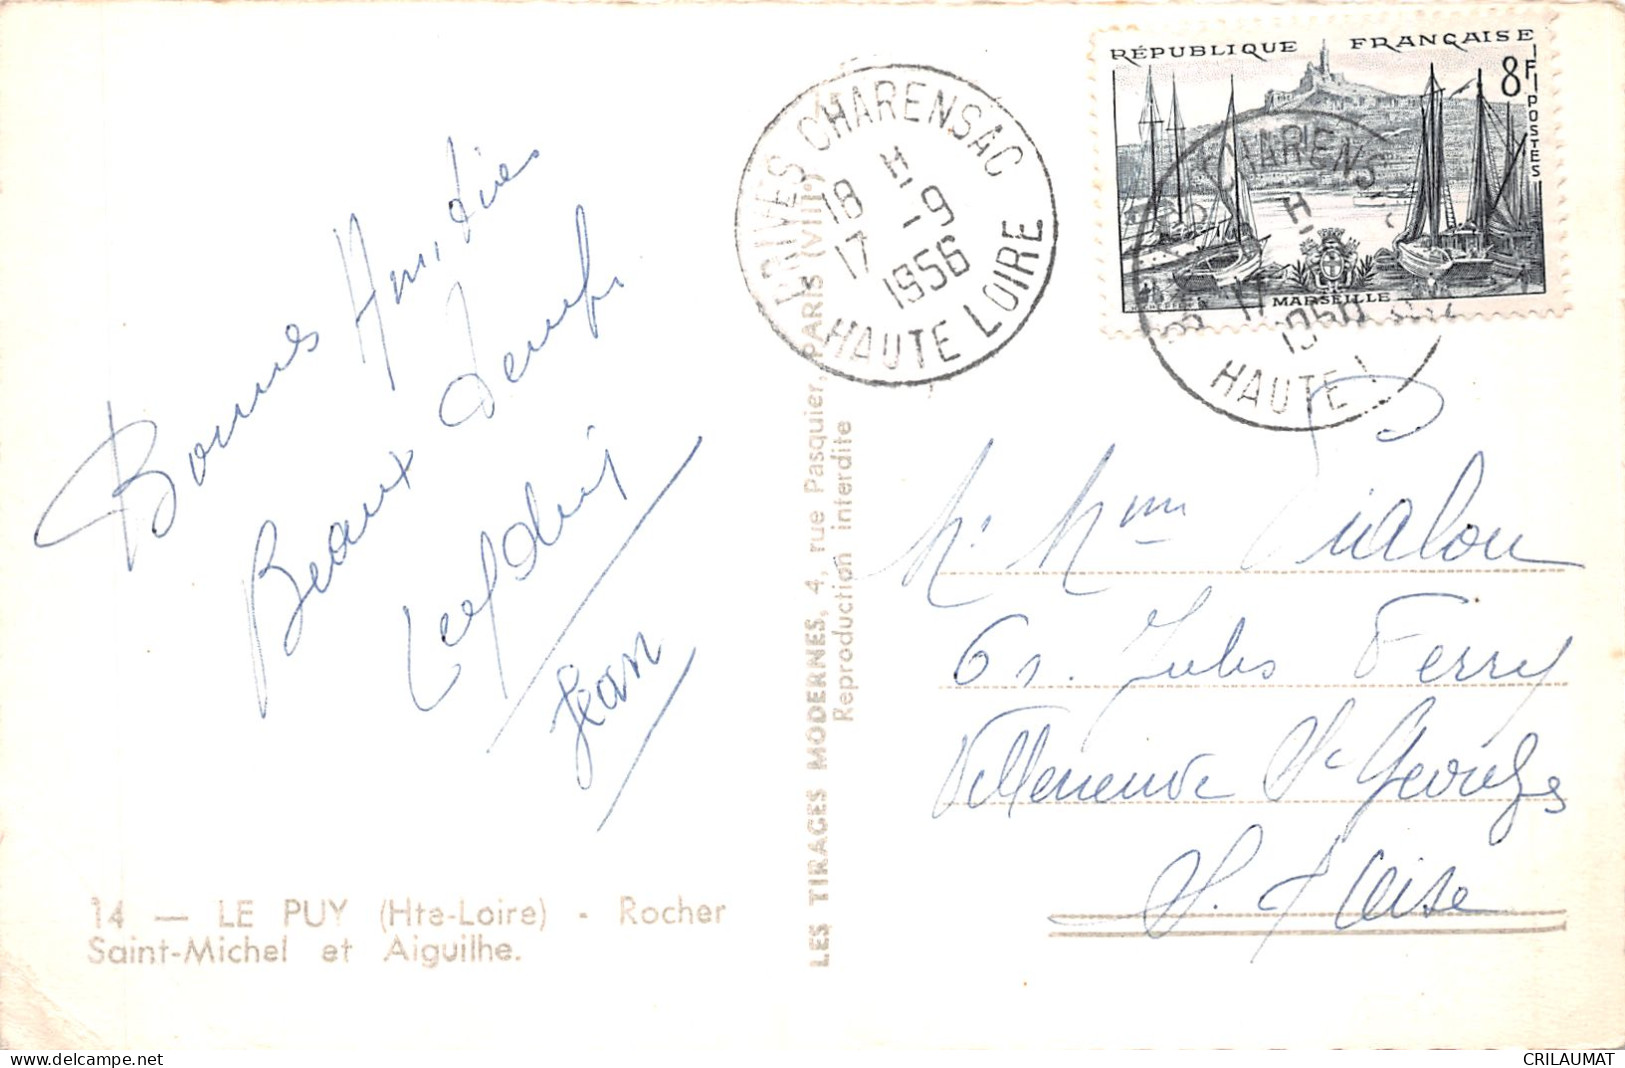 Bonnes Amitiés
Beaux Temps
Jean
14 — LE PUY (Hte-Loire) - Rocher
Saint-Michel et Aiguilhe.
LES TIRAGES MODERNES, 4, rue Pasquier, PARIS (VIIIe)
Reproduction interdite
BRIVES CHARENSAC
18 H
17 -9
1956
HAUTE LOIRE
RÉPUBLIQUE FRANÇAISE
8F
POSTES
MARSEILLE
CHARENS
H
17
HAUTE
M. Mme Vialon
61. Jules Ferry
Villeneuve St Georges
S. & Oise
CRILAUMAT